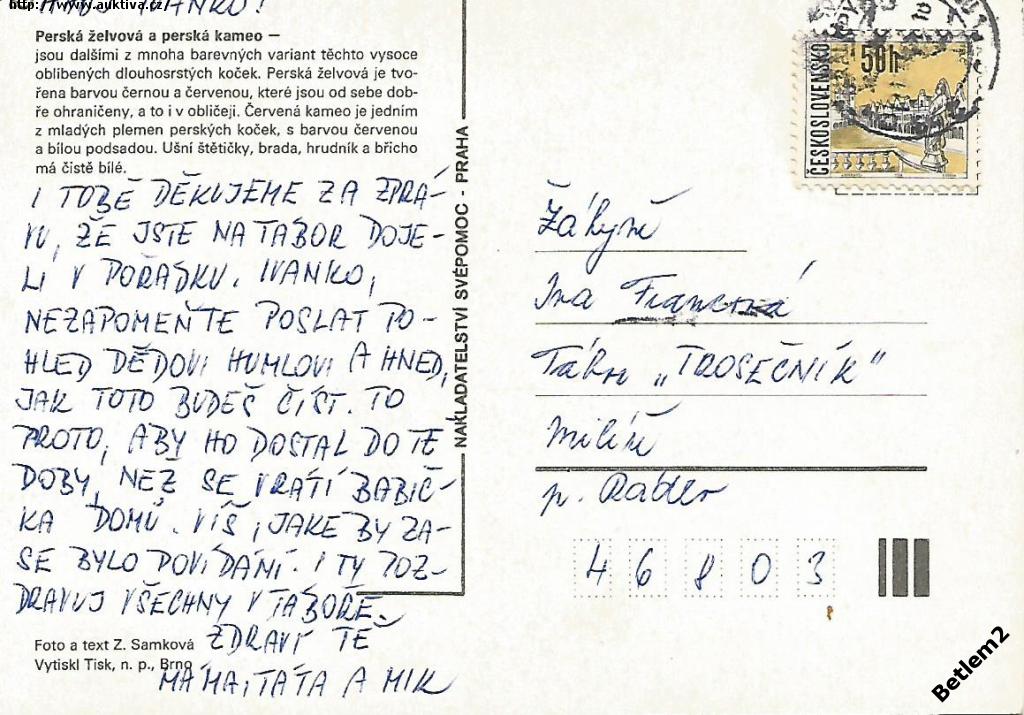 http://www.auktiva.cz/
Perská želvová a perská kameo —
jsou dalšími z mnoha barevných variant těchto vysoce
oblíbených dlouhosrstých koček. Perská želvová je tvo-
řena barvou černou a červenou, které jsou od sebe dob-
ře ohraničeny, a to i v obličeji. Červená kameo je jedním
z mladých plemen perských koček, s barvou červenou
a bílou podsadou. Ušní štětičky, brada, hrudník a břicho
má čistě bílé.
I TOBĚ DĚKUJEME ZA ZPRÁ-
VU, ŽE JSTE NA TÁBOR DOJE-
LI V POŘÁDKU. IVANKO,
NEZAPOMEŇTE POSLAT PO-
HLED DĚDOVI HUMLOVI A HNED,
JAK TOTO BUDEŠ ČÍST. TO
PROTO, ABY HO DOSTAL DO TÉ
DOBY, NEŽ SE VRÁTÍ BABIČ-
KA DOMŮ. VÍŠ, JAKÉ BY ZA-
SE BYLO POVÍDÁNÍ. I TY POZ-
DRAVUJ VŠECHNY V TÁBOŘE.
ZDRAVÍ TĚ
MÁMA, TÁTA A MIK
Foto a text Z. Samková
Vytiskl Tisk, n. p., Brno
NAKLADATELSTVÍ SVÉPOMOC - PRAHA
ČESKOSLOVENSKO
50h
Žákyně
Iva
Tábor „TROSEČNÍK"
Milíře
p. Rádlo
46803
Betlem2